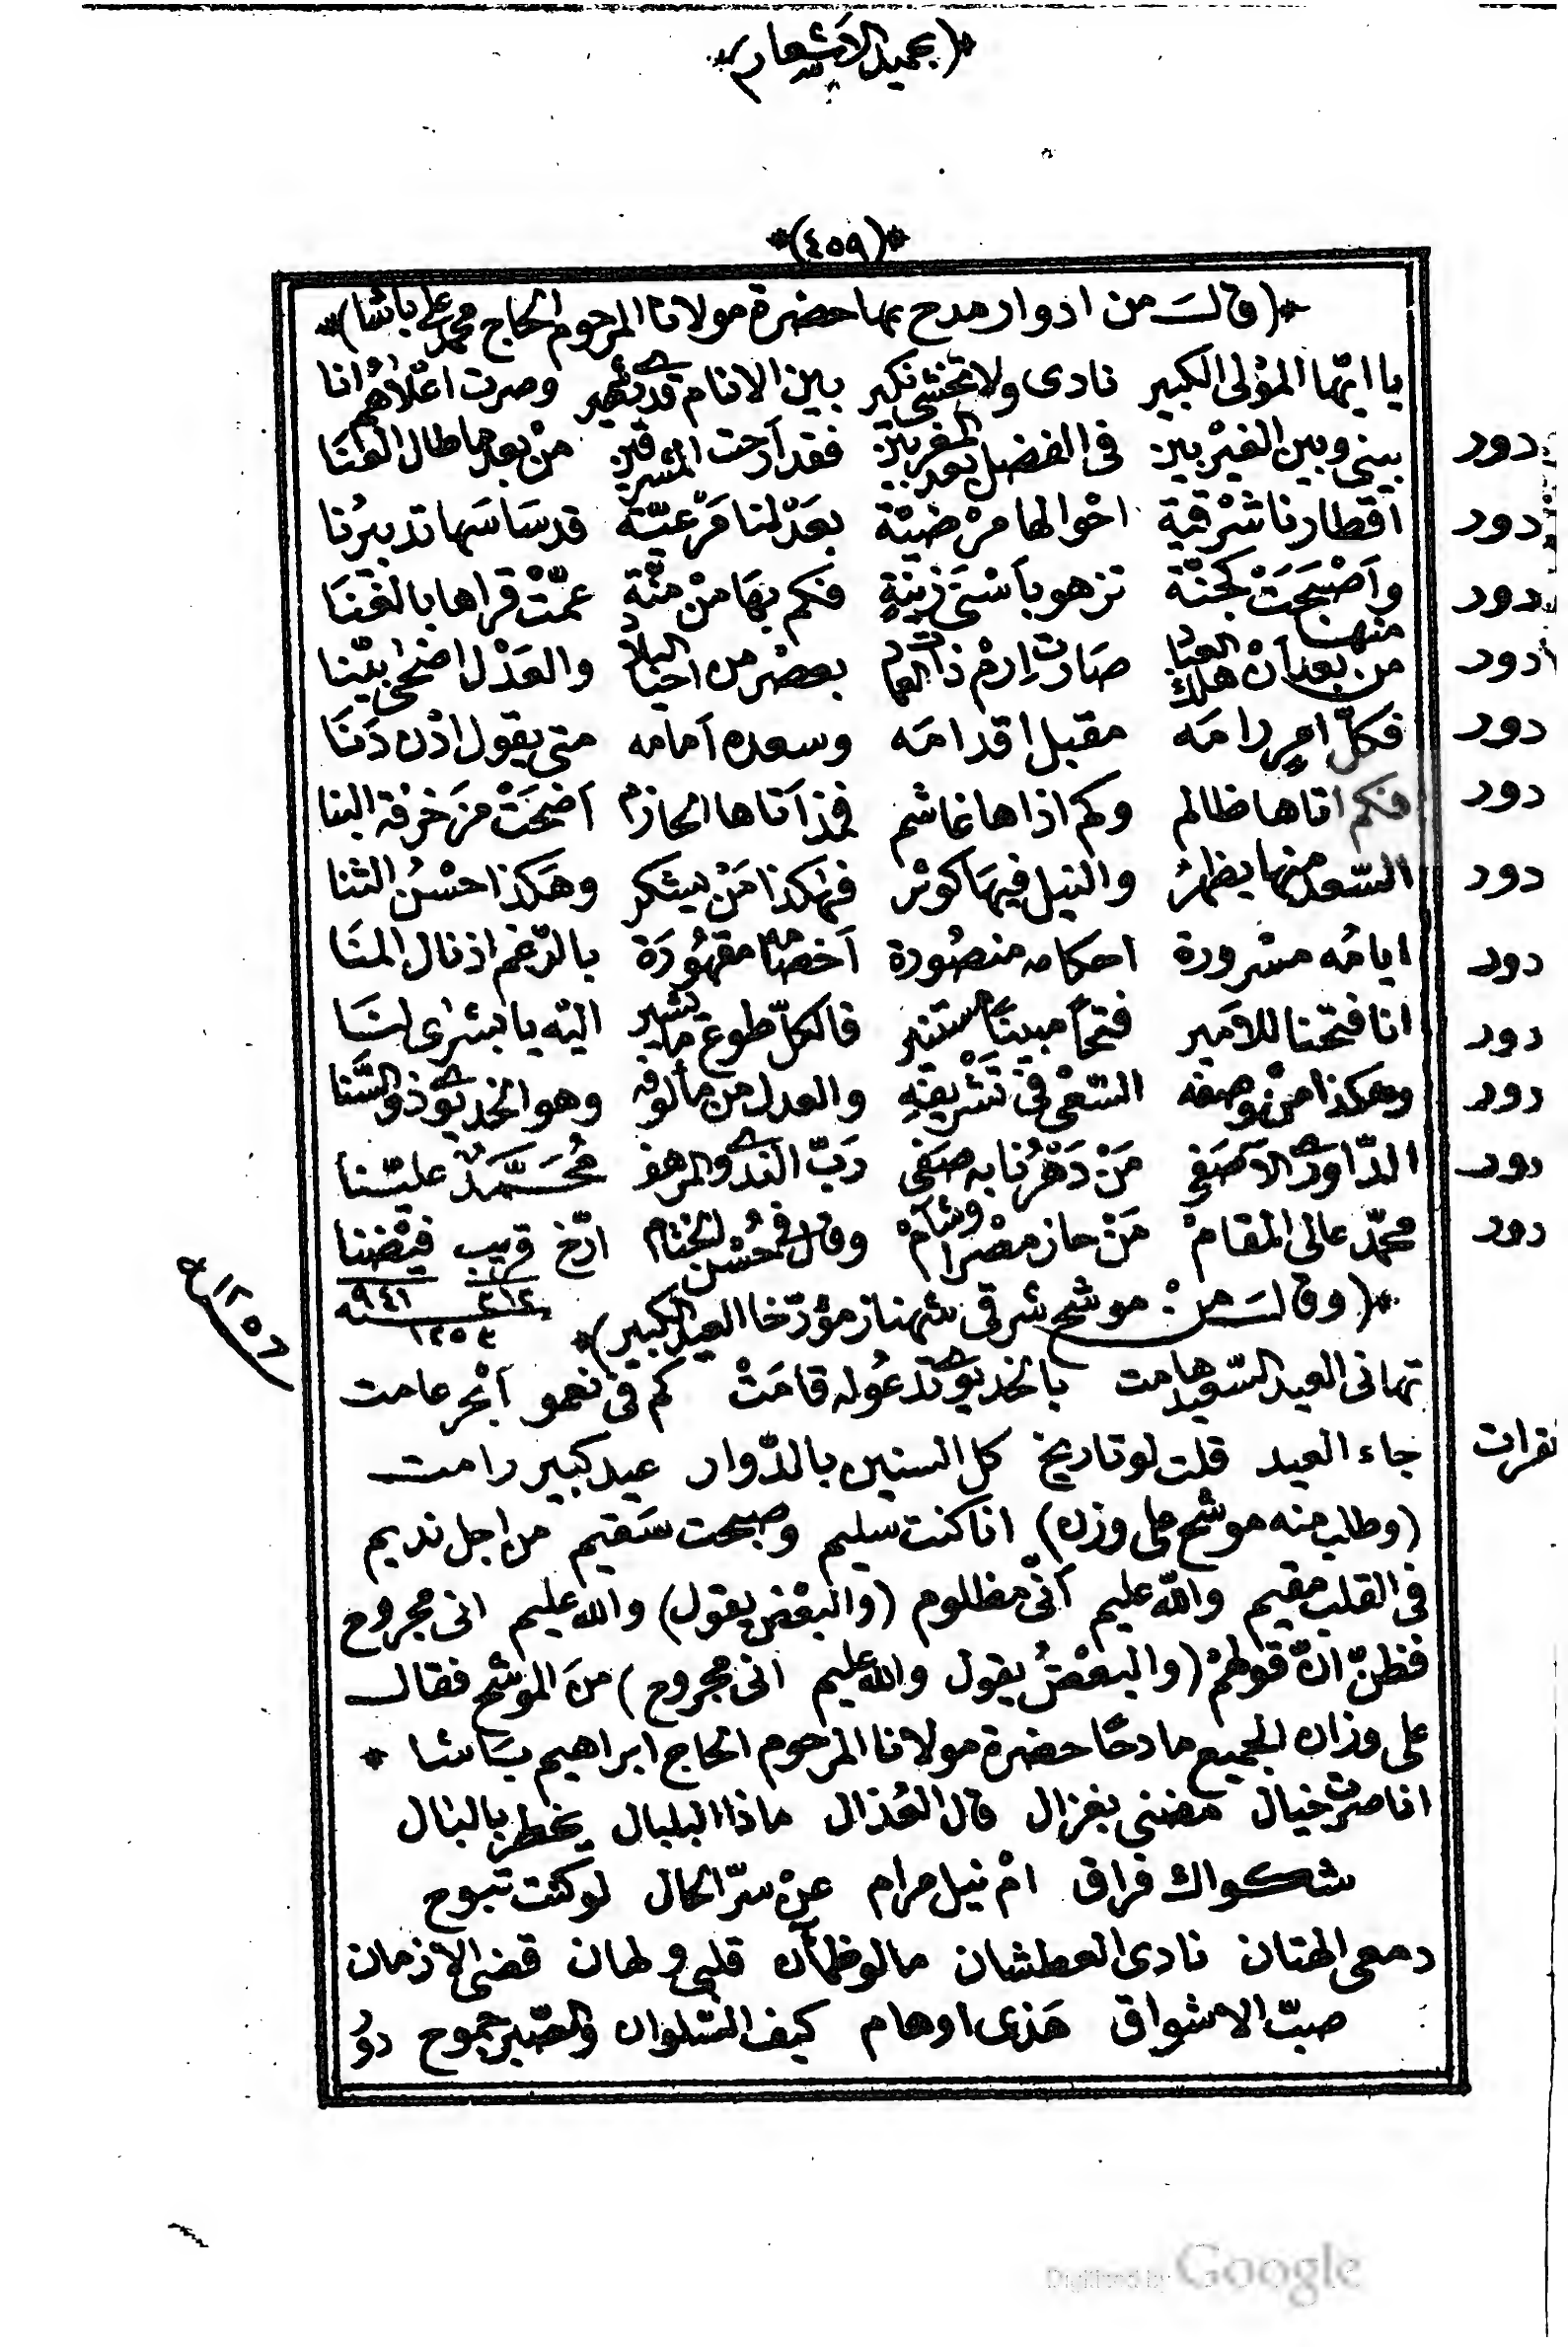 *(بحميد الاشعار)*
*(٤٥٩)*
*(قال من ادوار مدح بها حضرة مولانا المرحوم الحاج محمد على باشا)*
يا ايّها المؤلى الكبير نادى ولا تخشى نكير بين الانام قدى شهير وصرت اعْلاهُم انا
دور بينى وبين الغيْر بين فى الفضل بعد المغربين فقد أرحت المشرقين منْ بعد ما طال العَنَا
دور اقطارنا شرْقية احْوالها مرْضيّة بعَدْلنا مَرْعيّة قد سَاسَها تدبيرُنا
دور وأصْبَحَتْ كجنّة تزهو بأسْنَى زينةٍ فكم بهَا منْ منّةٍ عمّتْ قراها بالغنَا
دور من بعد أن هلك منها العباد صَارت إرمْ ذات العماد بعضْر من احْيا البلاد والعَدْل اضحى بيْننا
دور فكلّ امرٍ رامَه مقبل اقدامَه وسعده أمامه متى يقول ادْن دَنَا
دور فكم اتاها ظالم وكم اذاها غاشم فمذ أتاها الحازم أضحَتْ مزَخرفة البنا
دور السّعد منها يظهرُ والنيل فيهَا كوثر فهٰكذا مَنْ يشكر وهَكذا حسْنُ الثنا
دور ايامُه مسْرورة احكامه منصُورة أخصامه مقهُورَة بالرّغم اذ نال المنَا
دور انا فتحْنا للأمير فتحًا مبينًا مستنير فالكلّ طوع ما يشير اليْه يا بشراى لنَا
دور وهكذا منْ وصفه السّعْى فى تَشْريفهِ والعدل من مألوفه وهو الخديوى ذو السَّنا
دور الدّاورى الآصَفى مَنْ دَهْرُنا به صَفى رَبّ الندى والمرهف مُحَمَّدٌ عليّنا
دور محمّد عالى المقامْ مَنْ حاز مصْرا وشآمْ وقال فى حُسْن الختام ارّخ قريب فيْضنا
٣١٢ ٩٤١
١٢٥٣
١٢٥٦
*(وقال من موشح شرقى شهناز مؤرّخا العيد الكبير)*
تهانى العيد السّعيد هامت بالخديوى تدعُوله قامَتْ كم فى نهمو أبْحر عامت
نقرات جاء العيد قلت لو تاريخ كل السنين بالدّوار عيد كبير رامت
(وطلب منه موشح على وزن) انا كنت سليم وصبحت سَقيم من اجل نديم
فى القلب مقيم والله عليم أنّى مظلوم (والبعْض يقول) والله عليم انى مجروح
فظنّ انّ قولهُمْ (والبعْضُ يقول والله عليم انى مجروح) منَ الموشح فقال
على وزان الجميع مادحًا حضرة مولانا المرحوم الحاج ابراهيم بَاشا *
انا صرت خيال مضنى بغزال قال العُذال ماذا البلبال يخطر بالبَال
شكواك فراق امْ نيل مرام عنْ سرّ الحال لو كنت تبوح
دمعى الهتان نادى العطشان مالو ظمآن قلبى ولهان قضى الازمان
صبّ الاشواق هَذى اوهام كيف السّلوان والصّبر جموح دوُ
Digitized by Google